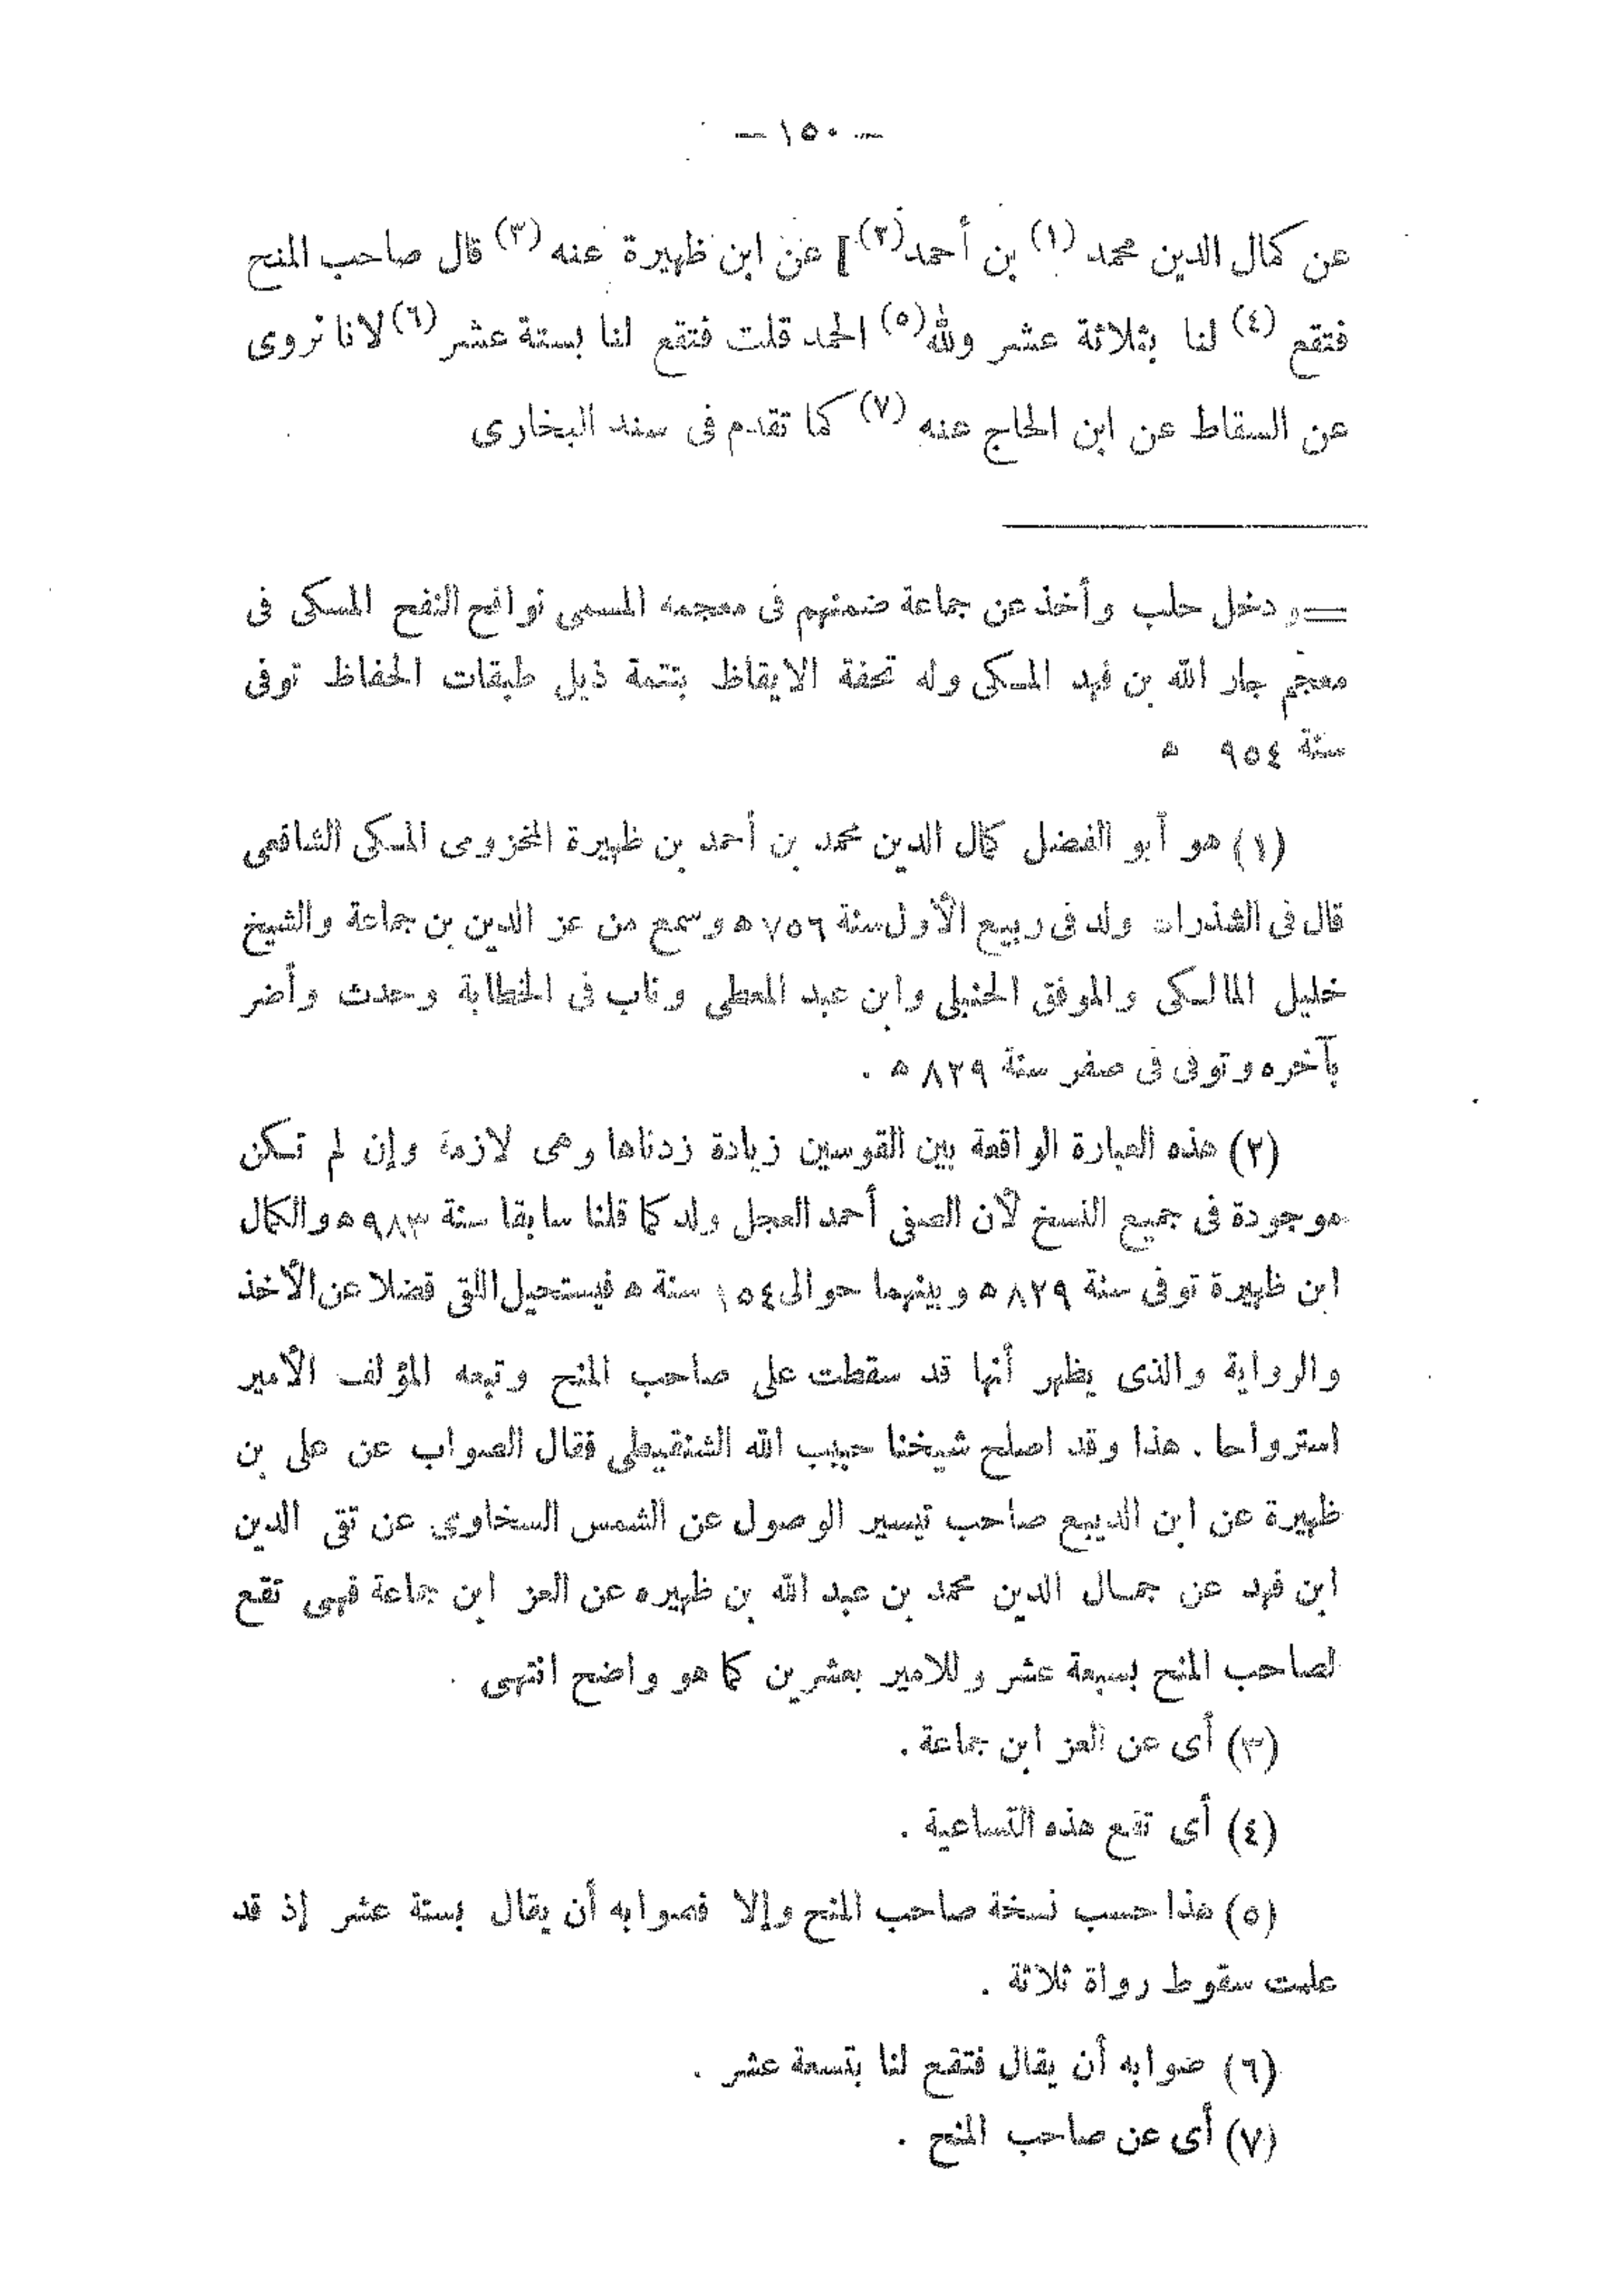 — ١٥٠ —
عن كمال الدين محمد (١) بن أحمد(٢)] عن ابن ظهيرة عنه (٣) قال صاحب المنح
فتقع (٤) لنا بثلاثة عشر ولله(٥) الحمد قلت فتقع لنا بستة عشر (٦) لانا نروى
عن السقاط عن ابن الحاج عنه (٧) كما تقدم فى سند البخارى
= ودخل حلب وأخذ عن جماعة ضمنهم فى معجمه المسمى نوافح النفح المسكى فى
معجم جار الله بن فهد المكى وله تحفة الايقاظ بتتمة ذيل طبقات الحفاظ توفى
سنة ٩٥٤ ه
(١) هو أبو الفضل كمال الدين محمد بن أحمد بن ظهيرة المخزومى المكى الشافعى
قال فى الشذرات ولد فى ربيع الأول سنة ٧٥٦ ه وسمع من عز الدين بن جماعة والشيخ
خليل المالكى والموفق الحنبلى وابن عبد المعطى وناب فى الخطابة وحدث وأضر
بآخره وتوفى فى صفر سنة ٨٢٩ ه .
(٢) هذه العبارة الواقعة بين القوسين زيادة زدناها وهى لازمة وإن لم تكن
موجودة فى جميع النسخ لأن الصفى أحمد العجل ولد كما قلنا سابقا سنة ٩٨٣ ه والكمال
ابن ظهيرة توفى سنة ٨٢٩ ه وبينهما حوالى ١٥٤ سنة ه فيستحيل اللقى فضلا عن الأخذ
والرواية والذى يظهر أنها قد سقطت على صاحب المنح وتبعه المؤلف الأمير
استرواحا . هذا وقد اصلح شيخنا حبيب الله الشنقيطى فقال الصواب عن على بن
ظهيرة عن ابن الديبع صاحب تيسير الوصول عن الشمس السخاوى عن تقى الدين
ابن فهد عن جمال الدين محمد بن عبد الله بن ظهيره عن العز ابن جماعة فهى تقع
لصاحب المنح بسبعة عشر وللامير بعشرين كما هو واضح انتهى .
(٣) أى عن العز ابن جماعة .
(٤) أى تقع هذه التساعية .
(٥) هذا حسب نسخة صاحب المنح وإلا فصوابه أن يقال بستة عشر إذ قد
علمت سقوط رواة ثلاثة .
(٦) صوابه أن يقال فتقع لنا بتسعة عشر .
(٧) أى عن صاحب المنح .